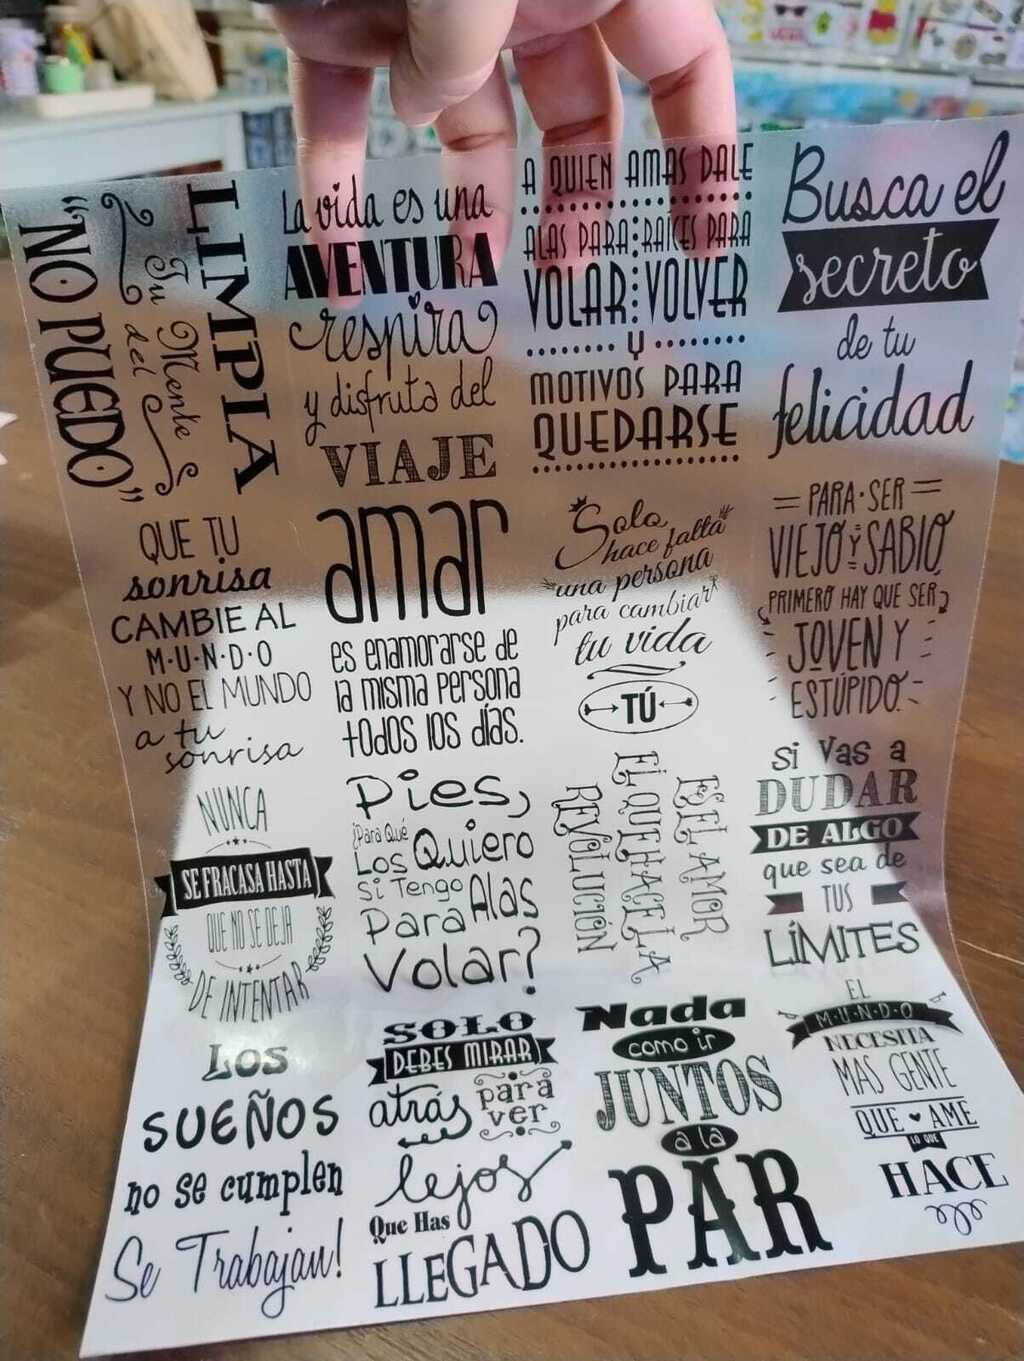 LIMPIA
Tu Mente
del
"NO PUEDO"
La vida es una
AVENTURA
respira
y disfruta del
VIAJE
A QUIEN AMAS DALE
ALAS PARA RAÍCES PARA
VOLAR VOLVER
Y
MOTIVOS PARA
QUEDARSE
Busca el
secreto
de tu
felicidad
QUE TU
sonrisa
CAMBIE AL
M·U·N·D·O
Y NO EL MUNDO
a tu
sonrisa
amar
es enamorarse de
la misma persona
todos los días.
Solo
hace falta
una persona
para cambiar
tu vida
TÚ
PARA·SER
VIEJO Y SABIO
PRIMERO HAY QUE SER
JOVEN Y
ESTÚPIDO.
NUNCA
SE FRACASA HASTA
QUE NO SE DEJA
DE INTENTAR
Pies,
¿Para Qué
Los Quiero
Si Tengo
Para Alas
Volar?
ES EL AMOR
EL QUE HACE LA
REVOLUCIÓN
Si Vas a
DUDAR
DE ALGO
que sea de
TUS
LÍMITES
LOS
SUEÑOS
no se cumplen
Se Trabajan!
SOLO
DEBES MIRAR
atrás para
ver
lejos
Que Has
LLEGADO
Nada
como ir
JUNTOS
a la
PAR
EL
M·U·N·D·O
NECESITA
MAS GENTE
QUE AME
LO QUE
HACE